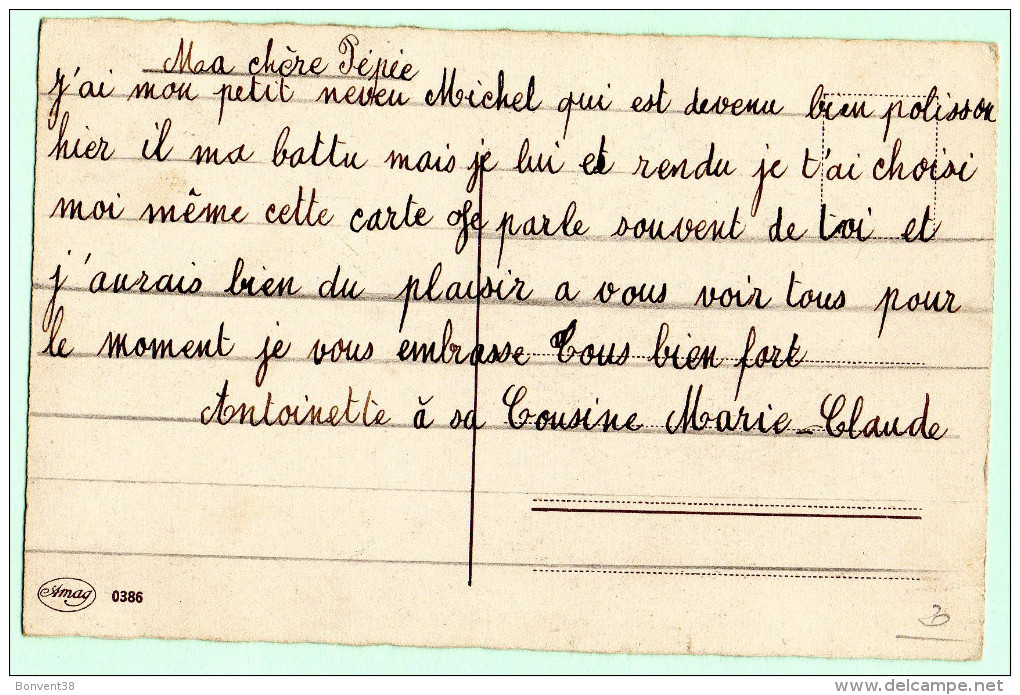 Ma chère Pépée
J'ai mon petit neveu Michel qui est devenu bien polisson
hier il ma battu mais je lui et rendu je t'ai choisi
moi même cette carte Je parle souvent de toi et
j'aurais bien du plaisir a vous voir tous pour
le moment je vous embrasse Tous bien fort
Antoinette à sa Cousine Marie-Claude
Amag 0386
Bonvent38
delcampe.net